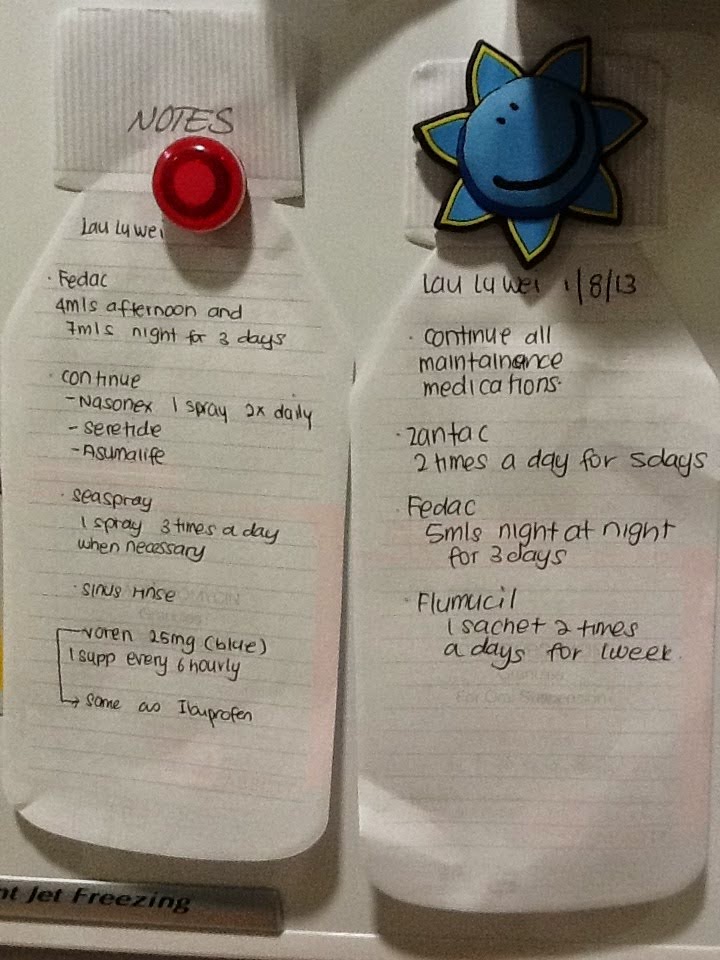 NOTES
Lau Lu wei
· Fedac
4mls afternoon and
7mls night for 3 days
· continue
- Nasonex 1 spray 2x daily
- Seretide
- Asumalife
· seaspray
1 spray 3 times a day
when necassary
· sinus rinse
voren 25mg (blue)
1 supp every 6 hourly
→ same as Ibuprofen
Lau Lu wei 1/8/13
· continue all
maintainance
medications.
· zantac
2 times a day for 5days
· Fedac
5mls night at night
for 3days
· Flumucil
1 sachet 2 times
a days for 1week.
For Oral Suspension
nt Jet Freezing